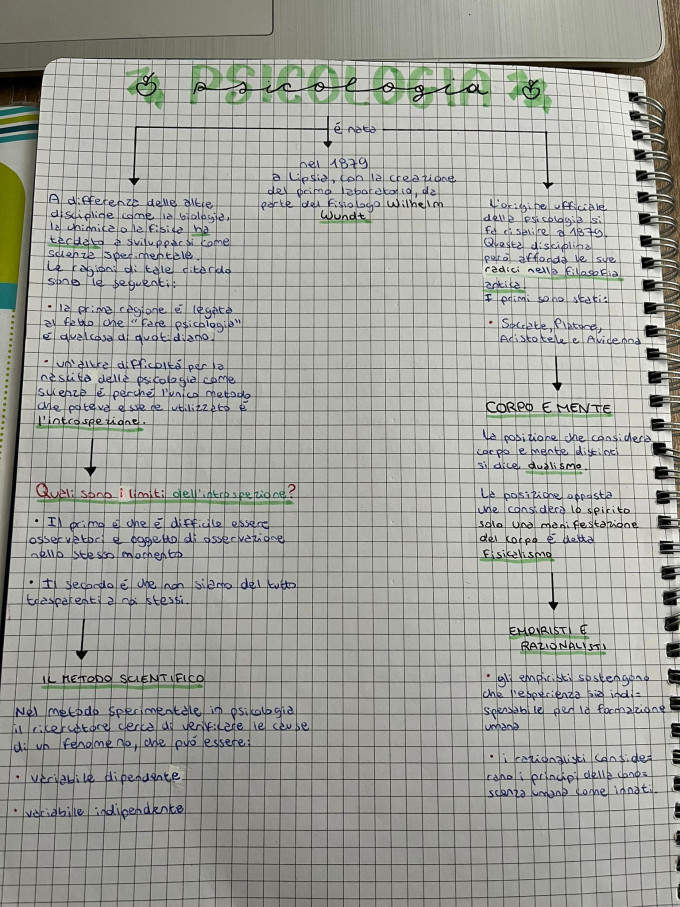 PSICOLOGIA
psicologia
é nata
nel 1879
a Lipsia, con la creazione
del primo laboratorio, da
parte del fisiologo Wilhelm
Wundt
A differenza delle altre
discipline come la biologia,
la chimica o la fisica ha
tardato a svilupparsi come
scienza sperimentale.
Le ragioni di tale ritardo
sono le seguenti:
• la prima ragione é legata
al fatto che "fare psicologia"
é qualcosa di quotidiano.
• un'altra difficoltá per la
nascita della psicologia come
scienza é perché l'unico metodo
che poteva essere utilizzato é
l'introspezione.
Quali sono i limiti dell'introspezione?
• Il primo é che é difficile essere
osservatori e oggetto di osservazione
nello stesso momento
• Il secondo é che non siamo del tutto
trasparenti a noi stessi.
IL METODO SCIENTIFICO
Nel metodo sperimentale in psicologia
il ricercatore cerca di verificare le cause
di un fenomeno, che puó essere:
• variabile dipendente
• variabile indipendente
L'origine ufficiale
della psicologia si
fa risalire a 1879.
Questa disciplina
peró affonda le sue
radici nella filosofia
antica.
I primi sono stati:
• Socrate, Platone,
Aristotele e Avicenna
CORPO E MENTE
La posizione che considera
corpo e mente distinti
si dice dualismo.
La posizione opposta
che considera lo spirito
solo una manifestazione
del corpo é detta
fisicalismo
EMPIRISTI E
RAZIONALISTI
• gli empiristi sostengono
che l'esperienza sia indi=
spensabile per la formazione
umana
• i razionalisti conside=
rano i principi della cono=
scenza umana come innati.